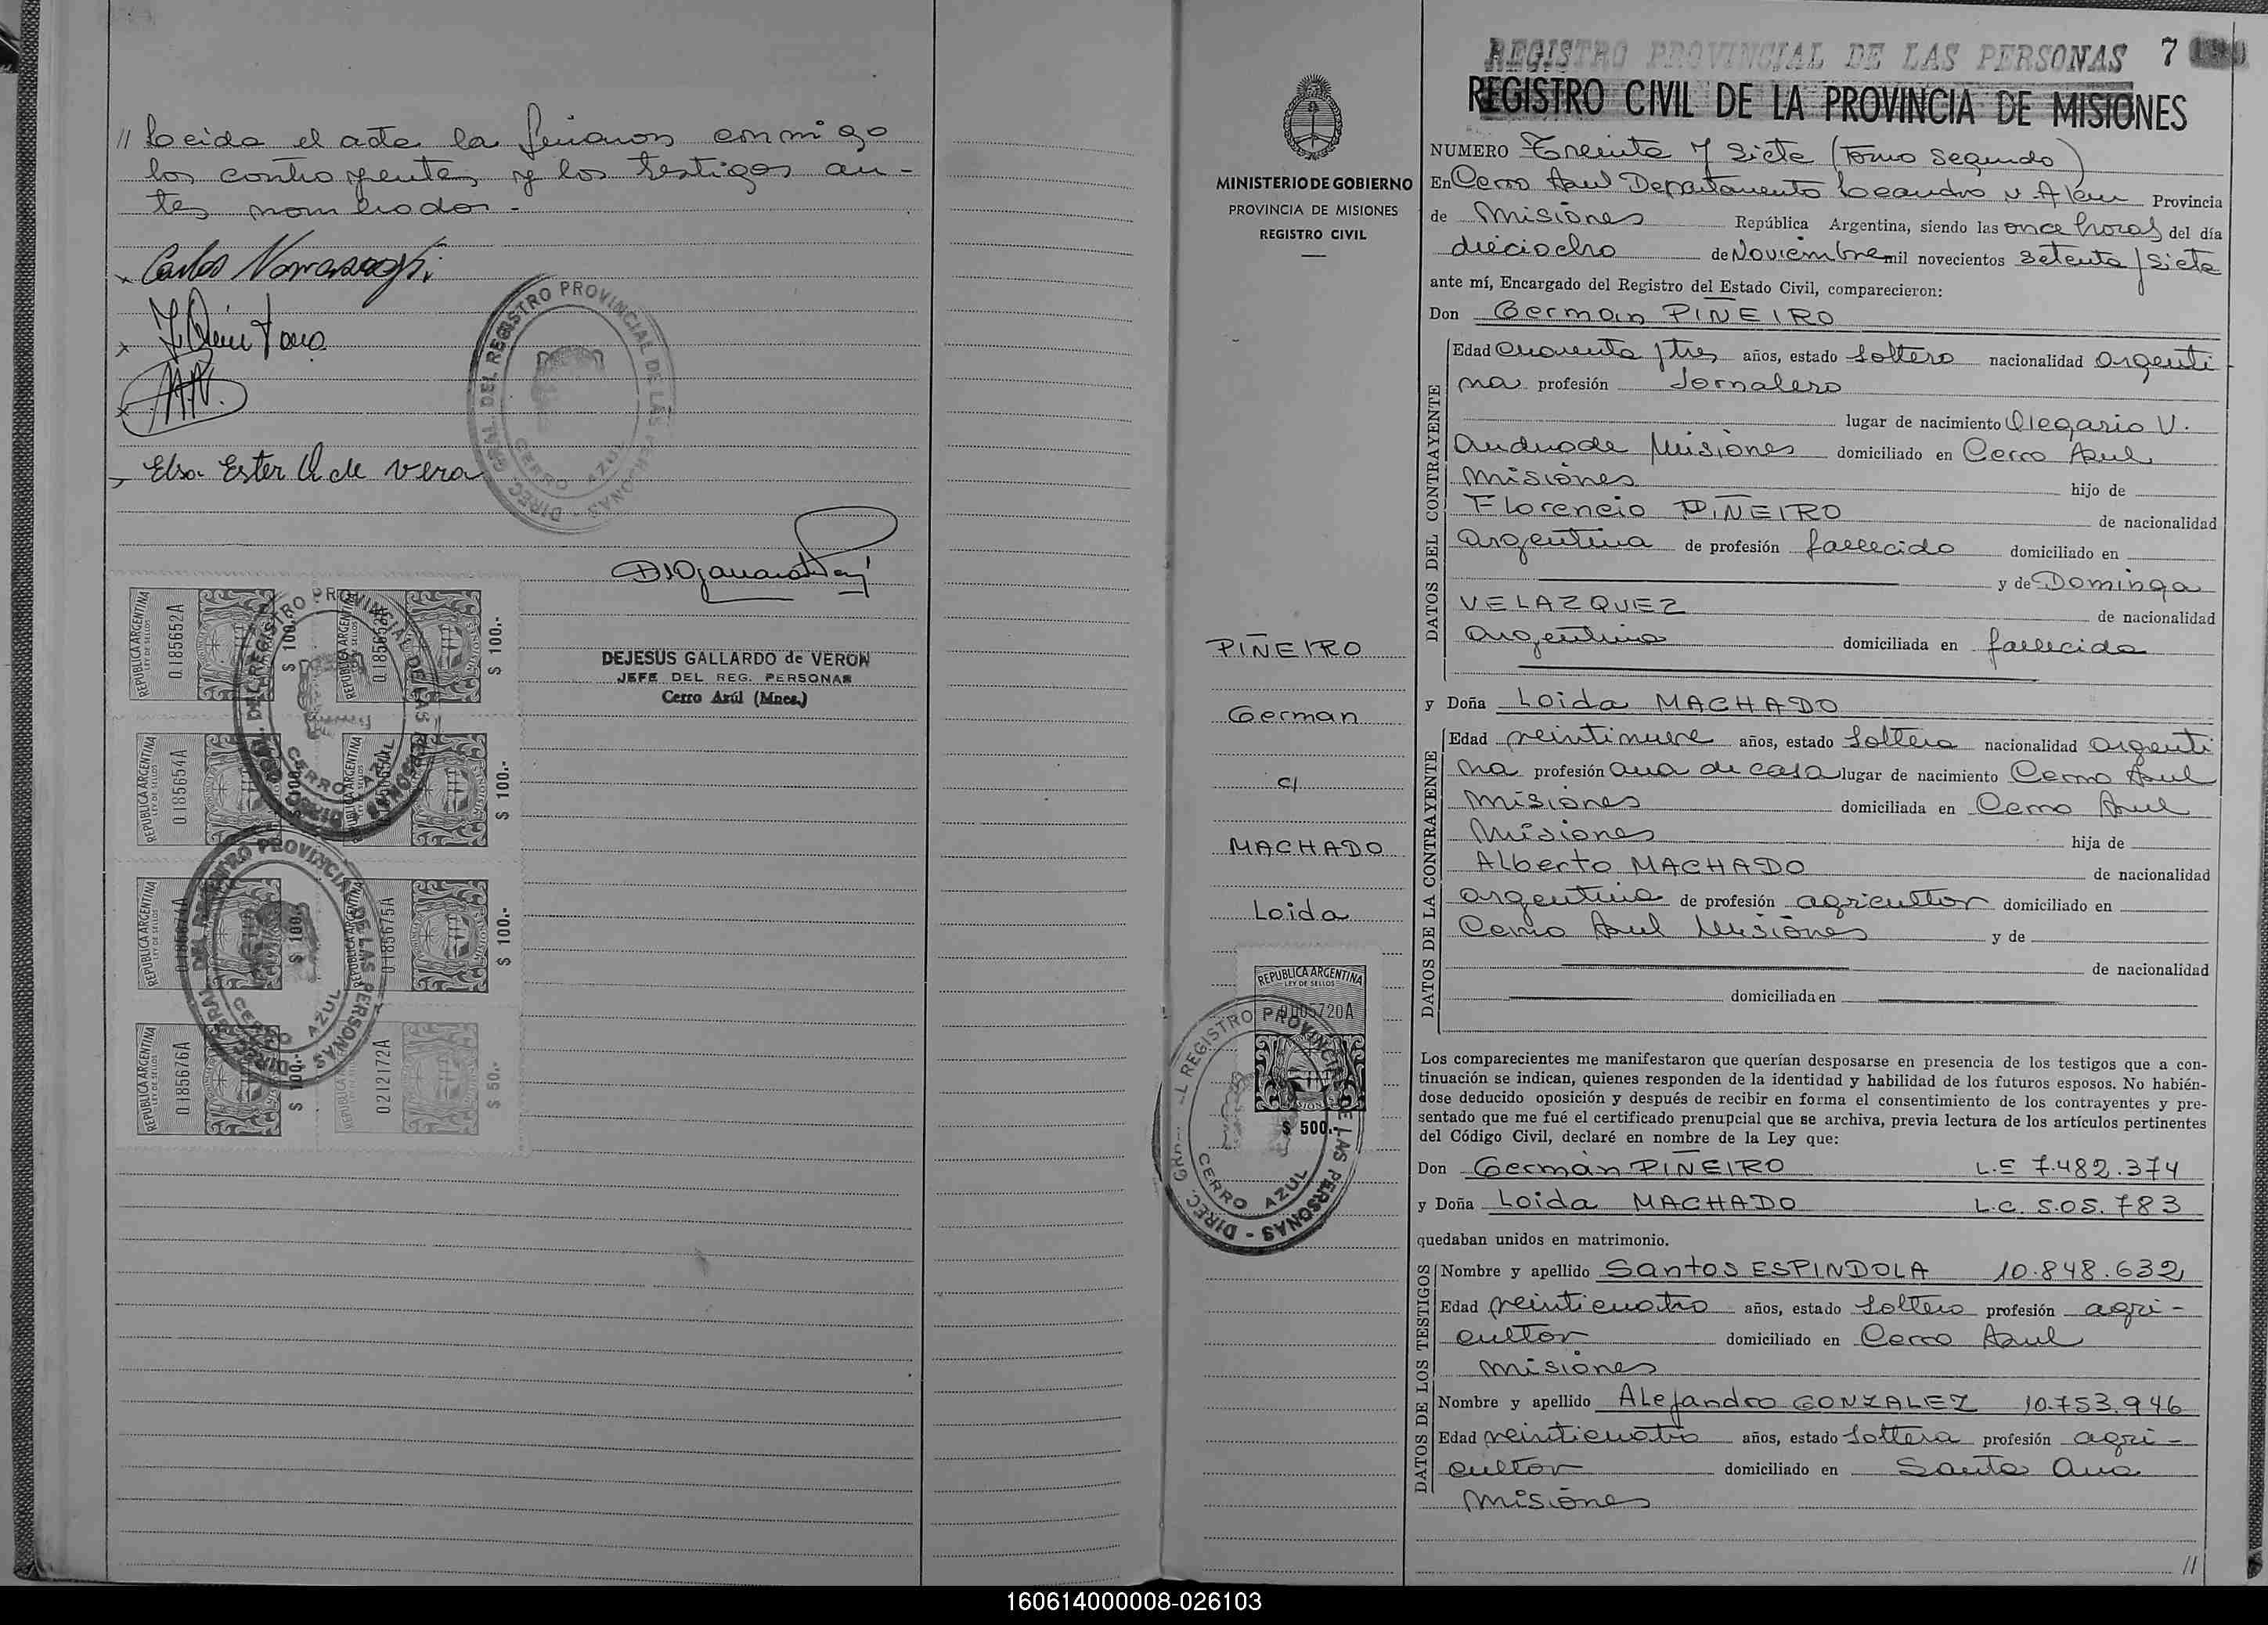 // Leida el acta la firmaron conmigo
los contrayentes y los testigos an-
tes nombrados.-
Carlos
Quintana
A.N.
Elsa Ester Q de Vera
DIREC. GRAL. DEL REGISTRO PROVINCIAL DE LAS PERSONAS -
CERRO AZUL
DEJESUS GALLARDO de VERON
JEFE DEL REG. PERSONAS
Cerro Azúl (Mnes.)
REPUBLICA ARGENTINA
LEY DE SELLOS
0.185652A
$ 100.-
REPUBLICA ARGENTINA
LEY DE SELLOS
$ 100.-
REPUBLICA ARGENTINA
LEY DE SELLOS
0.185654A
REPUBLICA ARGENTINA
$ 100.-
REPUBLICA ARGENTINA
LEY DE SELLOS
$ 100.-
REPUBLICA ARGENTINA
0.185675A
$ 100.-
REPUBLICA ARGENTINA
LEY DE SELLOS
0.185676A
$ 100.-
REPUBLICA ARGENTINA
0212172A
$ 50.-
DIREC. GRAL. DEL REGISTRO PROVINCIAL DE LAS PERSONAS
CERRO AZUL
DIREC. GRAL. DEL REGISTRO PROVINCIAL DE LAS PERSONAS
CERRO AZUL
MINISTERIO DE GOBIERNO
PROVINCIA DE MISIONES
REGISTRO CIVIL
PIÑEIRO
German
c/
MACHADO
Loida
REPUBLICA ARGENTINA
LEY DE SELLOS
$ 500.-
DIREC. GRAL. DEL REGISTRO PROVINCIAL DE LAS PERSONAS -
CERRO AZUL
REGISTRO PROVINCIAL DE LAS PERSONAS 7
REGISTRO CIVIL DE LA PROVINCIA DE MISIONES
NUMERO Treinta y siete (Tomo segundo)
En Cerro Azul Departamento Leandro N. Alem Provincia
de Misiones República Argentina, siendo las once horas del día
dieciocho de Noviembre mil novecientos setenta y siete
ante mí, Encargado del Registro del Estado Civil, comparecieron:
Don German PIÑEIRO
DATOS DEL CONTRAYENTE
Edad cuarenta y tres años, estado soltero nacionalidad argenti
na profesión Jornalero
lugar de nacimiento Olegario V.
Andrade Misiones domiciliado en Cerro Azul
Misiones hijo de
Florencio PIÑEIRO de nacionalidad
argentina de profesión fallecido domiciliado en
y de Dominga
VELAZQUEZ de nacionalidad
argentina domiciliada en fallecida
y Doña Loida MACHADO
DATOS DE LA CONTRAYENTE
Edad veintinueve años, estado soltera nacionalidad argenti
na profesión ama de casa lugar de nacimiento Cerro Azul
Misiones domiciliada en Cerro Azul
Misiones hija de
Alberto MACHADO de nacionalidad
argentina de profesión agricultor domiciliado en
Cerro Azul Misiones y de
de nacionalidad
domiciliada en
Los comparecientes me manifestaron que querían desposarse en presencia de los testigos que a con-
tinuación se indican, quienes responden de la identidad y habilidad de los futuros esposos. No habién-
dose deducido oposición y después de recibir en forma el consentimiento de los contrayentes y pre-
sentado que me fué el certificado prenupcial que se archiva, previa lectura de los artículos pertinentes
del Código Civil, declaré en nombre de la Ley que:
Don Germán PIÑEIRO L.E 7.482.374
y Doña Loida MACHADO L.C. 5.05.783
quedaban unidos en matrimonio.
DATOS DE LOS TESTIGOS
Nombre y apellido Santos ESPINDOLA 10.848.632
Edad veinticuatro años, estado soltero profesión agri-
cultor domiciliado en Cerro Azul
Misiones
Nombre y apellido Alejandro GONZALEZ 10.753.946
Edad veinticuatro años, estado soltera profesión agri-
cultor domiciliado en Santa Ana
Misiones
//
160614000008-026103